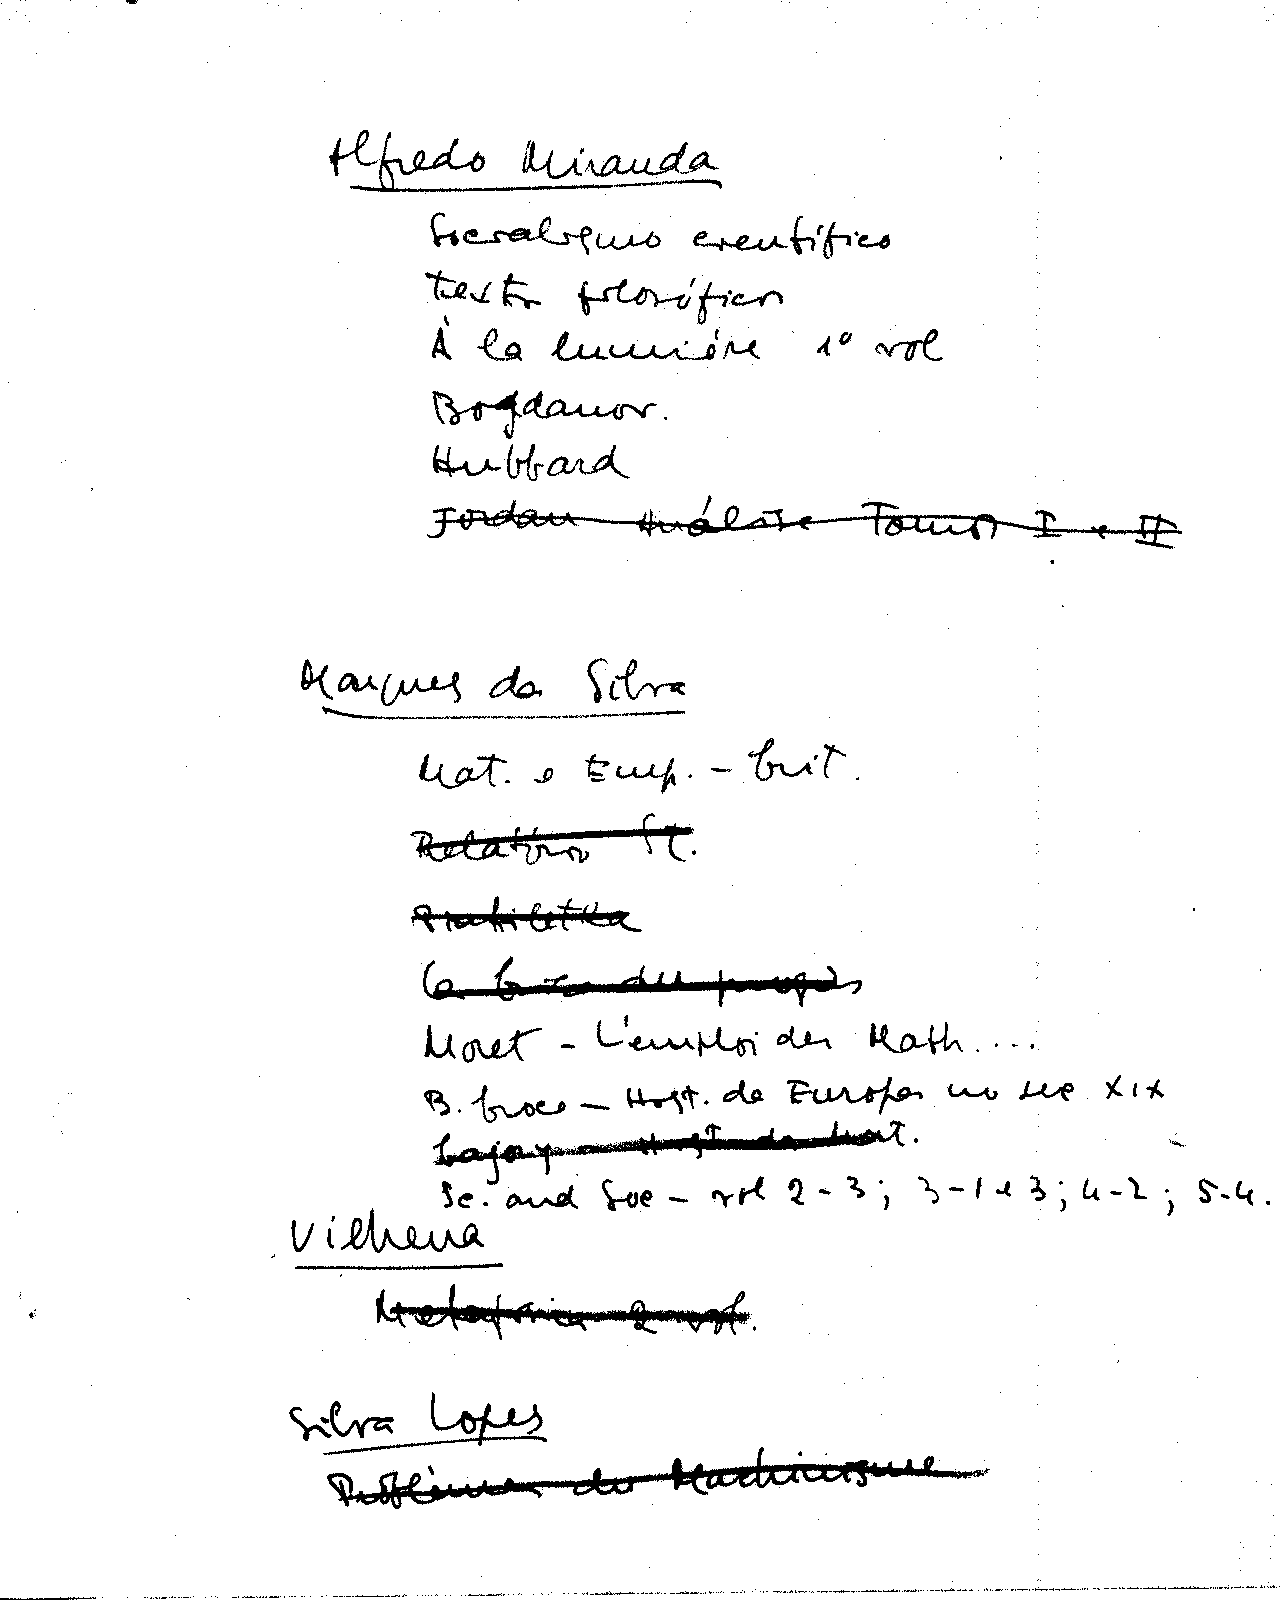 Alfredo Miranda
Socialismo científico
Textos filosóficos
À la lumière 1º vol
Bogdanov.
Hubbard
Jordan Análise Tomos I e II
Marques da Silva
Mat. e Emp. - Crit.
Relatório St.
Piatiletka
La crise du progrès
Moret - L'emploi des Math....
B. Croce - Hist. da Europa no sec XIX
Hist. da Mat.
Sc. and Soc - vol 2-3; 3-1 e 3; 4-2; 5-4.
Vilhena
2 vol.
Silva Lopes
Problèmes du Machinisme